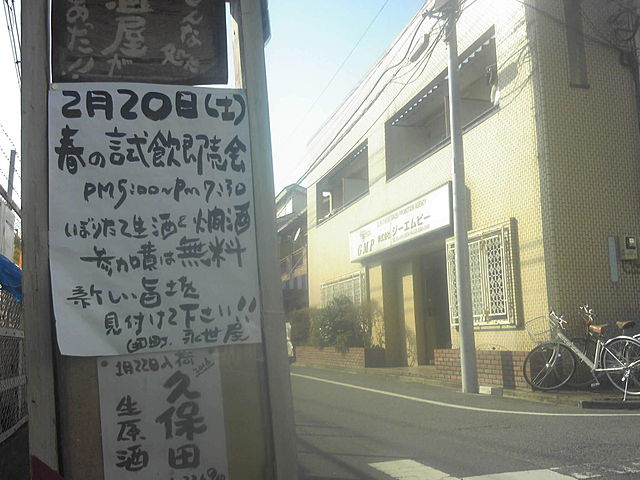 こんな
酒屋が
あのた!!
2月20日(土)
春の試飲即売会
PM5:00〜PM7:30
しぼりたて生酒と燗酒
参加費は無料
新しい旨士を
見付けて下さい!!
1月22日入荷
久保田
生原酒
GMP
株式会社 ジーエムピー